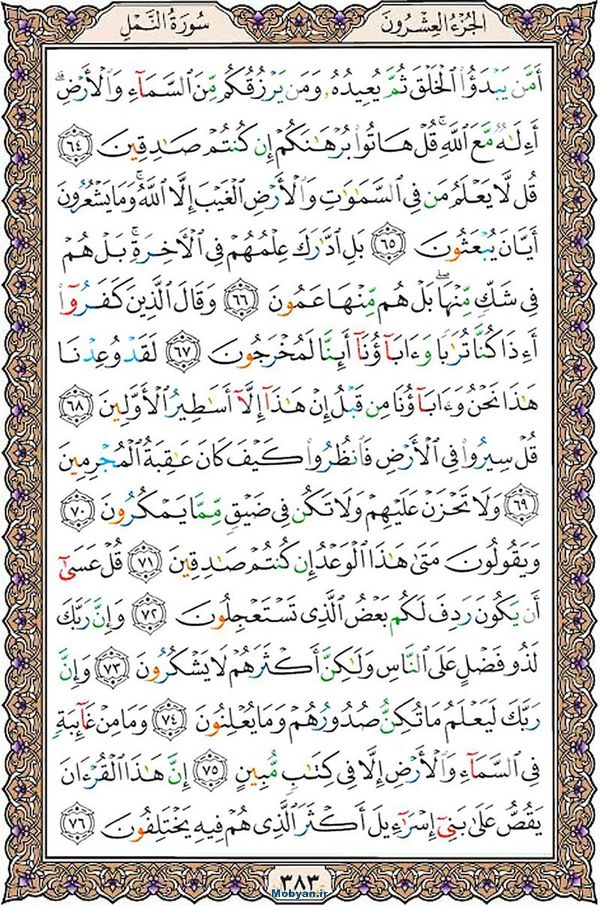 الجزء العشرون
سورة النمل
أَمَّن يَبْدَؤُا۟ ٱلْخَلْقَ ثُمَّ يُعِيدُهُۥ وَمَن يَرْزُقُكُم مِّنَ ٱلسَّمَآءِ وَٱلْأَرْضِ ۗ
أَءِلَٰهٌ مَّعَ ٱللَّهِ ۚ قُلْ هَاتُوا۟ بُرْهَٰنَكُمْ إِن كُنتُمْ صَٰدِقِينَ ﴿٦٤﴾
قُل لَّا يَعْلَمُ مَن فِى ٱلسَّمَٰوَٰتِ وَٱلْأَرْضِ ٱلْغَيْبَ إِلَّا ٱللَّهُ ۚ وَمَا يَشْعُرُونَ
أَيَّانَ يُبْعَثُونَ ﴿٦٥﴾ بَلِ ٱدَّٰرَكَ عِلْمُهُمْ فِى ٱلْءَاخِرَةِ ۚ بَلْ هُمْ
فِى شَكٍّ مِّنْهَا ۖ بَلْ هُم مِّنْهَا عَمُونَ ﴿٦٦﴾ وَقَالَ ٱلَّذِينَ كَفَرُوٓا۟
أَءِذَا كُنَّا تُرَٰبًا وَءَابَآؤُنَآ أَئِنَّا لَمُخْرَجُونَ ﴿٦٧﴾ لَقَدْ وُعِدْنَا
هَٰذَا نَحْنُ وَءَابَآؤُنَا مِن قَبْلُ إِنْ هَٰذَآ إِلَّآ أَسَٰطِيرُ ٱلْأَوَّلِينَ ﴿٦٨﴾
قُلْ سِيرُوا۟ فِى ٱلْأَرْضِ فَٱنظُرُوا۟ كَيْفَ كَانَ عَٰقِبَةُ ٱلْمُجْرِمِينَ
﴿٦٩﴾ وَلَا تَحْزَنْ عَلَيْهِمْ وَلَا تَكُن فِى ضَيْقٍ مِّمَّا يَمْكُرُونَ ﴿٧٠﴾
وَيَقُولُونَ مَتَىٰ هَٰذَا ٱلْوَعْدُ إِن كُنتُمْ صَٰدِقِينَ ﴿٧١﴾ قُلْ عَسَىٰٓ
أَن يَكُونَ رَدِفَ لَكُم بَعْضُ ٱلَّذِى تَسْتَعْجِلُونَ ﴿٧٢﴾ وَإِنَّ رَبَّكَ
لَذُو فَضْلٍ عَلَى ٱلنَّاسِ وَلَٰكِنَّ أَكْثَرَهُمْ لَا يَشْكُرُونَ ﴿٧٣﴾ وَإِنَّ
رَبَّكَ لَيَعْلَمُ مَا تُكِنُّ صُدُورُهُمْ وَمَا يُعْلِنُونَ ﴿٧٤﴾ وَمَا مِنْ غَآئِبَةٍ
فِى ٱلسَّمَآءِ وَٱلْأَرْضِ إِلَّا فِى كِتَٰبٍ مُّبِينٍ ﴿٧٥﴾ إِنَّ هَٰذَا ٱلْقُرْءَانَ
يَقُصُّ عَلَىٰ بَنِىٓ إِسْرَٰٓءِيلَ أَكْثَرَ ٱلَّذِى هُمْ فِيهِ يَخْتَلِفُونَ ﴿٧٦﴾
٣٨٣
Mobyan.ir